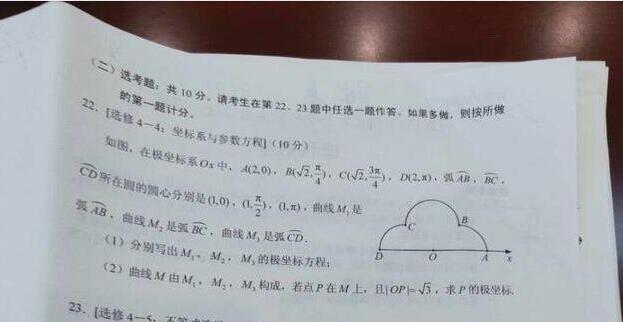 (二)选考题：共10分。请考生在第22、23题中任选一题作答。如果多做，则按所做
的第一题计分。
22. [选修4—4：坐标系与参数方程](10分)
如图，在极坐标系Ox中，A(2,0)，B(√2,π/4)，C(√2,3π/4)，D(2,π)，弧AB，BC，
CD所在圆的圆心分别是(1,0)，(1,π/2)，(1,π)，曲线M₁是
弧AB，曲线M₂是弧BC，曲线M₃是弧CD.
(1)分别写出M₁，M₂，M₃的极坐标方程；
(2)曲线M由M₁，M₂，M₃构成，若点P在M上，且|OP|=√3，求P的极坐标.
C
B
D
O
A
x
23. [选修4—5：不等式选